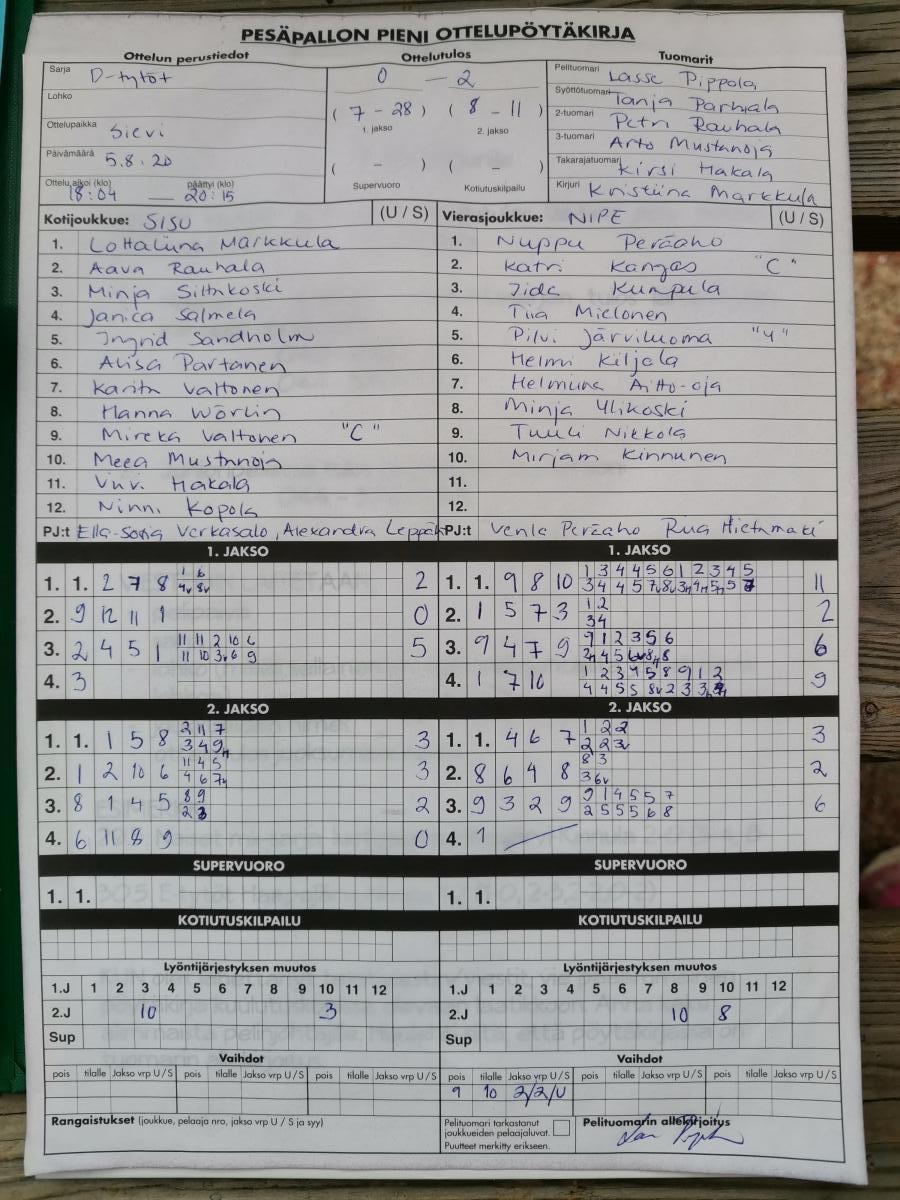 PESÄPALLON PIENI OTTELUPÖYTÄKIRJA
Ottelun perustiedot Ottelutulos Tuomarit
Sarja D-tytöt
Lohko
Ottelupaikka Sievi
Päivämäärä 5.8.20
Ottelu alkoi (klo) päättyi (klo)
18:04 — 20:15
0 — 2
( 7 - 28 ) ( 8 - 11 )
1. jakso 2. jakso
( - ) ( - )
Supervuoro Kotiutuskilpailu
Pelituomari Lasse Pippola
Syöttötuomari Tanja Parhiala
2-tuomari Petri Rauhala
3-tuomari Arto Mustanoja
Takarajatuomari Kirsi Hakala
Kirjuri Kristiina Markkula
Kotijoukkue: SISU (U / S)
1. Lottaliina Markkula
2. Aava Rauhala
3. Minja Siltakoski
4. Janica Salmela
5. Ingrid Sandholm
6. Alisa Partanen
7. Karita Valtonen
8. Hanna Wörlin
9. Mireka Valtonen "C"
10. Meea Mustanoja
11. Vivi Hakala
12. Ninni Kopola
PJ:t Ella-Sofia Verkasalo, Alexandra
Vierasjoukkue: NIPE (U / S)
1. Nuppu Peräaho
2. Katri Kangas "C"
3. Iida Kumpula
4. Tiia Mielonen
5. Pilvi Järviluoma "4"
6. Helmi Kiljala
7. Helmiina Aitto-oja
8. Minja Ylikoski
9. Tuuli Nikkola
10. Mirjam Kinnunen
11.
12.
PJ:t Venla Peräaho Riia Hietamäki
1. JAKSO
1. 1. 2 7 8 1 6 2
4v 8v
2. 9 12 11 1 0
3. 2 4 5 1 11 11 2 10 6 5
11 10 3v 6 9
4. 3
1. JAKSO
1. 1. 9 8 10 1 3 4 4 5 6 1 2 3 4 5 11
2. 1 5 7 3 1 2 2
3 4
3. 9 4 7 9 9 1 2 3 5 6 6
4. 1 7 10 1 2 3 4 5 8 9 1 2 9
2. JAKSO
1. 1. 1 5 8 2 11 7 3
3 4 9n
2. 1 2 10 6 11 4 5 3
4 6 7n
3. 8 1 4 5 8 9 2
2 3
4. 6 11 8 9 0
2. JAKSO
1. 1. 4 6 7 1 2 2 3
2 2 3v
2. 8 6 4 8 8 3 2
3 6v
3. 9 3 2 9 9 1 4 5 5 7 6
2 5 5 5 6 8
4. 1
SUPERVUORO SUPERVUORO
1. 1. 1. 1.
KOTIUTUSKILPAILU KOTIUTUSKILPAILU
Lyöntijärjestyksen muutos
1.J 1 2 3 4 5 6 7 8 9 10 11 12
2.J 10 3
Sup
Lyöntijärjestyksen muutos
1.J 1 2 3 4 5 6 7 8 9 10 11 12
2.J 10 8
Sup
Vaihdot
pois tilalle Jakso vrp U / S pois tilalle Jakso vrp U / S pois tilalle Jakso vrp U / S
Vaihdot
pois tilalle Jakso vrp U / S pois tilalle Jakso vrp U / S pois tilalle Jakso vrp U / S
9 10 2/2/U
Rangaistukset (joukkue, pelaaja nro, jakso vrp U / S ja syy)
Pelituomari tarkastanut
joukkueiden pelaajaluvat.
Puutteet merkitty erikseen.
Pelituomarin allekirjoitus